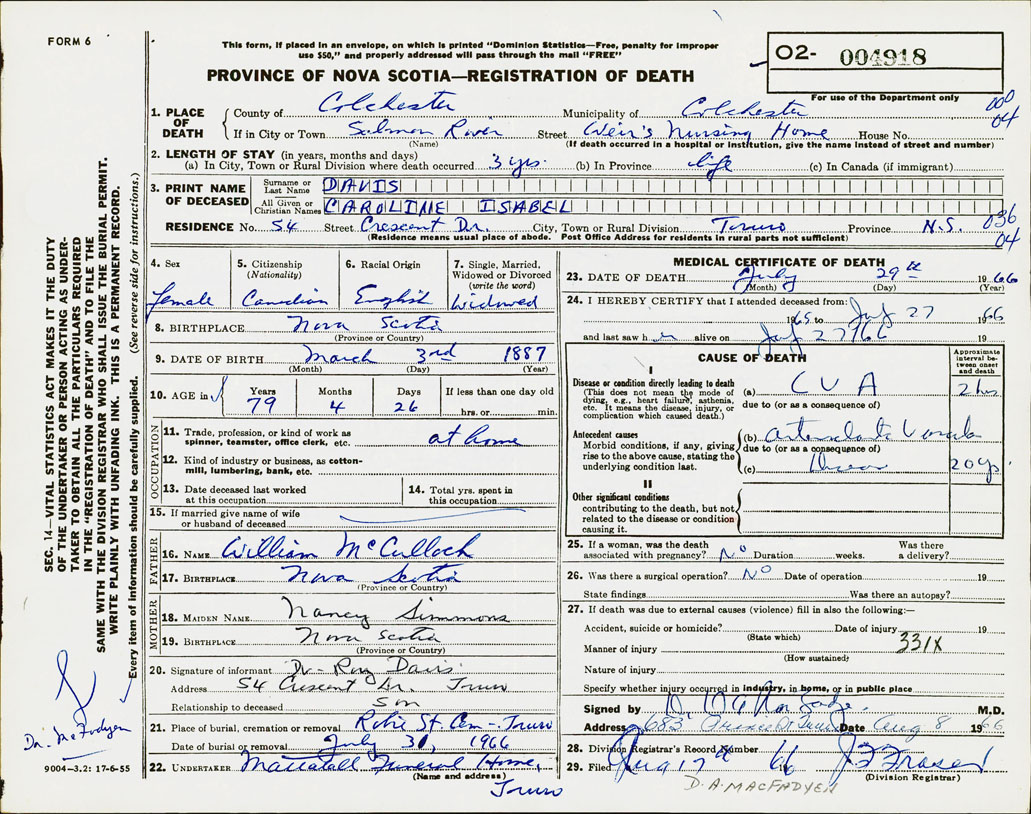 FORM 6
This form, if placed in an envelope, on which is printed "Dominion Statistics—Free, penalty for improper
use $50," and properly addressed will pass through the mail "FREE"
PROVINCE OF NOVA SCOTIA—REGISTRATION OF DEATH
02- 004918
For use of the Department only
1. PLACE OF DEATH County of Colchester Municipality of Colchester 000 04
If in City or Town Salmon River Street Weir's Nursing Home House No.
(Name) (If death occurred in a hospital or institution, give the name instead of street and number)
2. LENGTH OF STAY (in years, months and days)
(a) In City, Town or Rural Division where death occurred 3 yrs. (b) In Province life (c) In Canada (if immigrant)
3. PRINT NAME OF DECEASED Surname or Last Name DAVIS
All Given or Christian Names CAROLINE ISABEL
RESIDENCE No. 54 Street Crescent Dr. City, Town or Rural Division Truro Province N.S. 036 04
(Residence means usual place of abode. Post Office Address for residents in rural parts not sufficient)
4. Sex female
5. Citizenship (Nationality) Canadian
6. Racial Origin English
7. Single, Married, Widowed or Divorced (write the word) Widowed
8. BIRTHPLACE Nova Scotia
(Province or Country)
9. DATE OF BIRTH March 3rd 1887
(Month) (Day) (Year)
10. AGE in Years 79 Months 4 Days 26 If less than one day old hrs. or min.
OCCUPATION
11. Trade, profession, or kind of work as spinner, teamster, office clerk, etc. at home
12. Kind of industry or business, as cotton-mill, lumbering, bank, etc.
13. Date deceased last worked at this occupation
14. Total yrs. spent in this occupation
15. If married give name of wife or husband of deceased
FATHER
16. NAME William McCulloch
17. BIRTHPLACE Nova Scotia
(Province or Country)
MOTHER
18. MAIDEN NAME Nancy Simmons
19. BIRTHPLACE Nova Scotia
(Province or Country)
20. Signature of informant Dr. Roy Davis
Address 54 Crescent Dr. Truro
Relationship to deceased Son
21. Place of burial, cremation or removal Robie St. Cem - Truro
Date of burial or removal July 31, 1966
22. UNDERTAKER Mattatall Funeral Home,
(Name and address) Truro
MEDICAL CERTIFICATE OF DEATH
23. DATE OF DEATH July 29th 1966
(Month) (Day) (Year)
24. I HEREBY CERTIFY that I attended deceased from:
1965 to July 27 1966
and last saw h er alive on July 27 1966 19
CAUSE OF DEATH
Approximate interval between onset and death
I
Disease or condition directly leading to death
(This does not mean the mode of dying, e.g., heart failure, asthenia, etc. It means the disease, injury, or complication which caused death.)
(a) CVA 2 hrs
due to (or as a consequence of)
Antecedent causes
Morbid conditions, if any, giving rise to the above cause, stating the underlying condition last.
(b)
due to (or as a consequence of)
(c) 20 ys.
II
Other significant conditions
contributing to the death, but not related to the disease or condition causing it.
25. If a woman, was the death associated with pregnancy? No Duration weeks. Was there a delivery?
26. Was there a surgical operation? No Date of operation 19
State findings Was there an autopsy?
27. If death was due to external causes (violence) fill in also the following:—
Accident, suicide or homicide? Date of injury 19
(State which)
Manner of injury 331X
(How sustained)
Nature of injury
Specify whether injury occurred in industry, in home, or in public place
Signed by M.D.
Address 683 Prince St Truro Date Aug 8 1966
28. Division Registrar's Record Number
29. Filed Aug 17th 66 J F Fraser
(Division Registrar)
D. A. MACFADYEN
SEC. 14—VITAL STATISTICS ACT MAKES IT THE DUTY
OF THE UNDERTAKER OR PERSON ACTING AS UNDER-
TAKER TO OBTAIN ALL THE PARTICULARS REQUIRED
IN THE "REGISTRATION OF DEATH" AND TO FILE THE
SAME WITH THE DIVISION REGISTRAR WHO SHALL ISSUE THE BURIAL PERMIT.
WRITE PLAINLY WITH UNFADING INK. THIS IS A PERMANENT RECORD.
Every item of information should be carefully supplied. (See reverse side for instructions.)
Dr. McFadyen
9004—3.2: 17-6-55